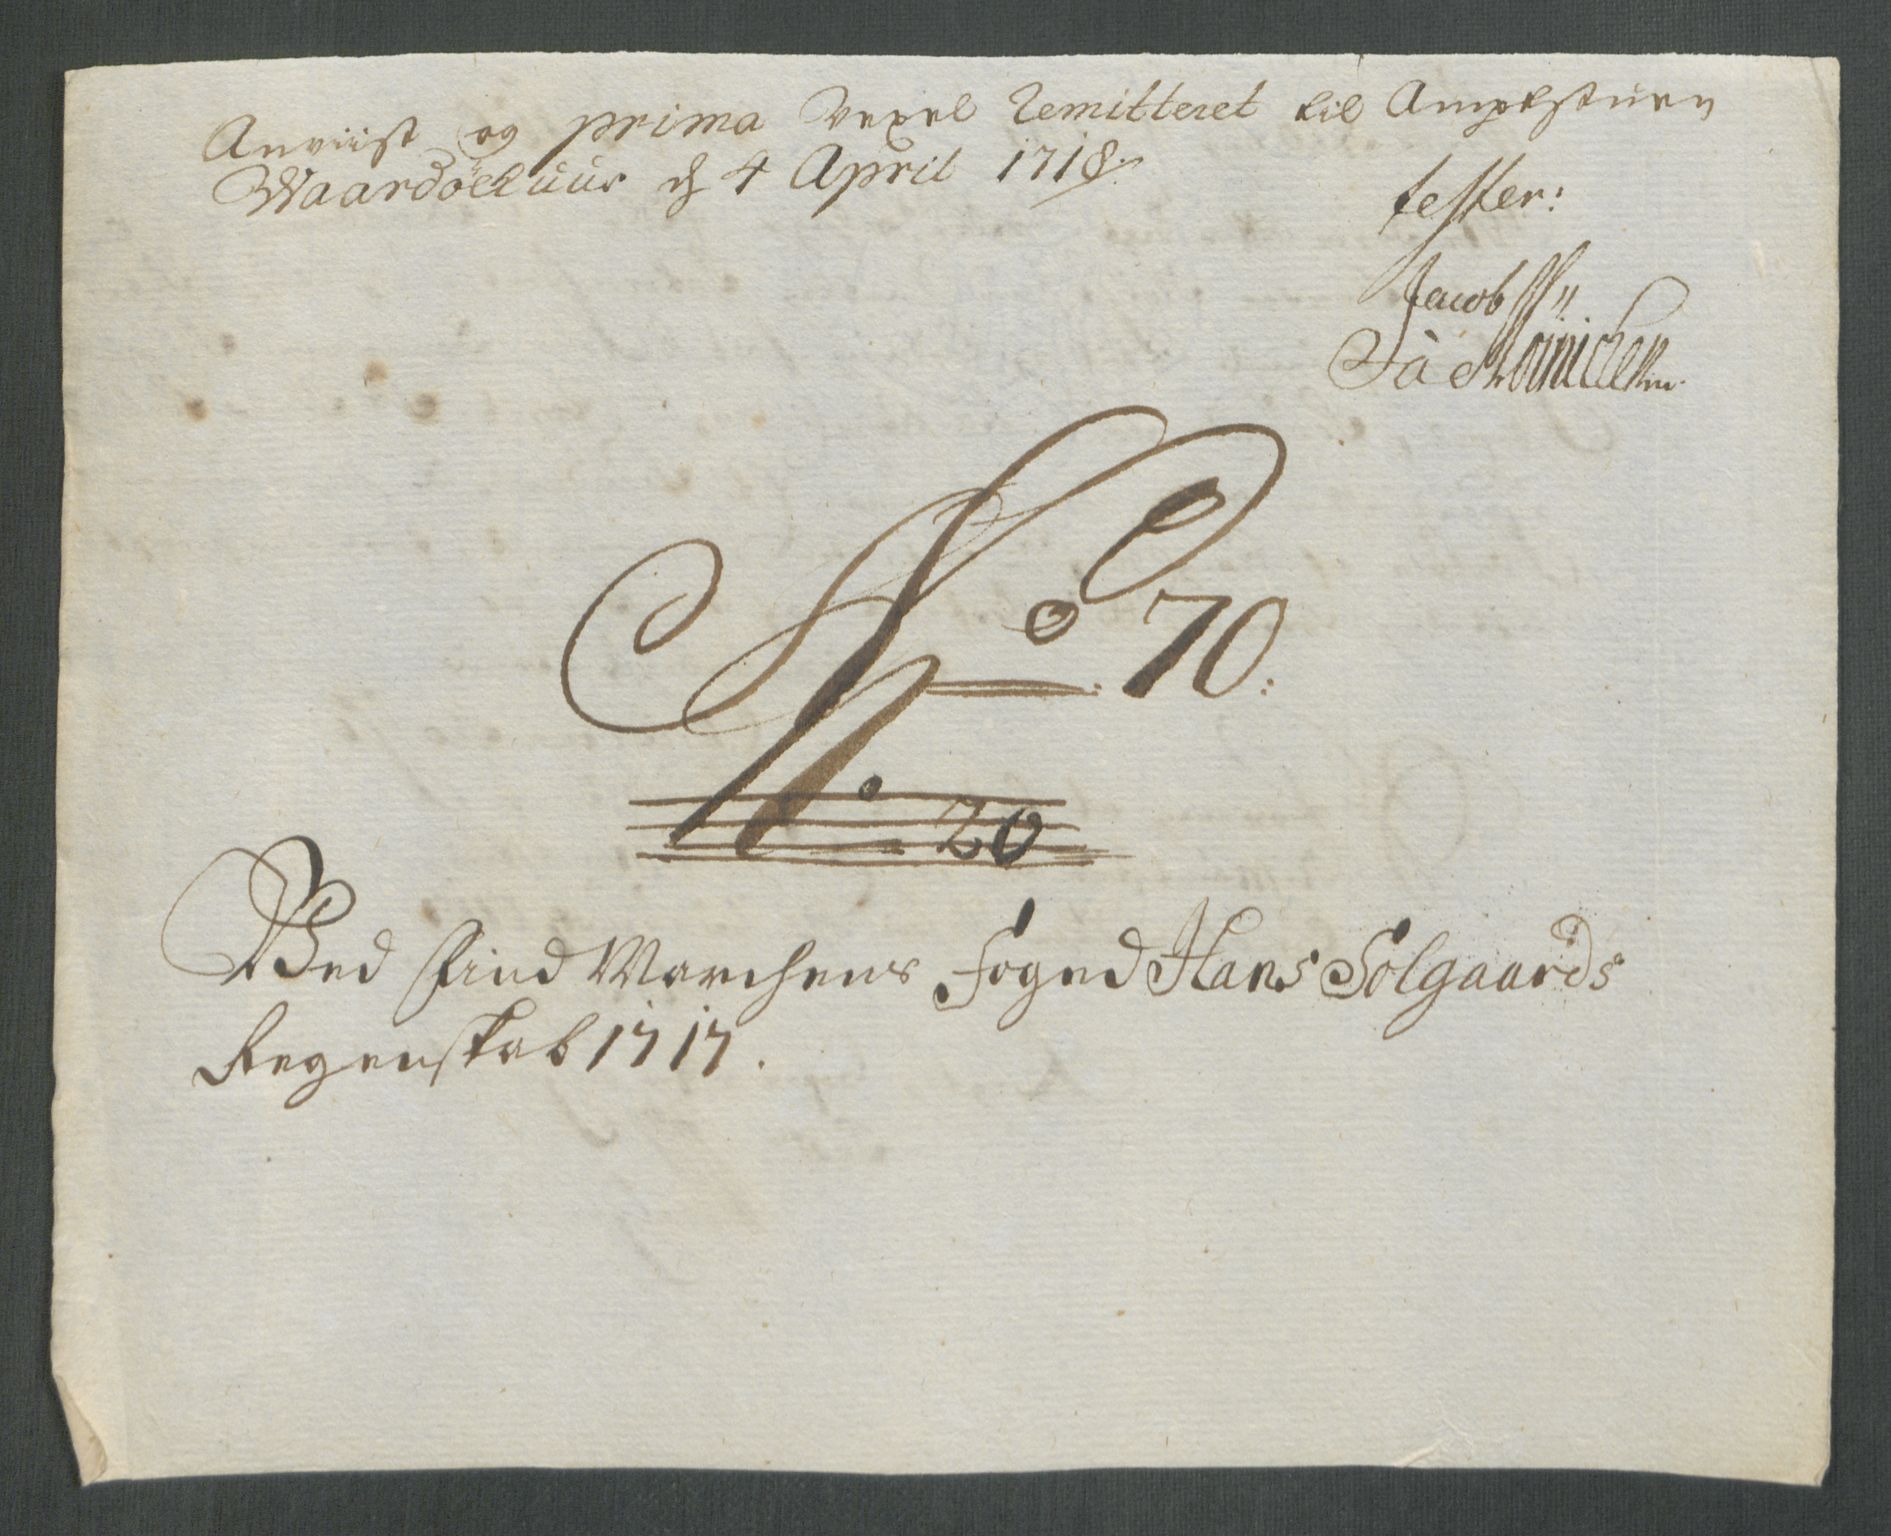 Anviist og prima Vexel Remitteret til Amptstuen
Waardöehuus d 4 April 1718.
tester:
Jacob
No 70:
N. 20
Ved Find Marchens Foged Hans Solgaards
Regenskab 1717.